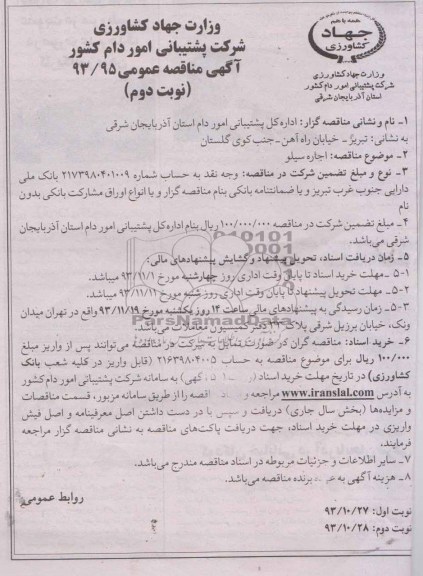 همه با هم
جهاد
کشاورزی
وزارت جهاد کشاورزی
شرکت پشتیبانی امور دام کشور
استان آذربایجان شرقی
وزارت جهاد کشاورزی
شرکت پشتیبانی امور دام کشور
آگهی مناقصه عمومی ۹۳/۹۵
(نوبت دوم)
۱- نام و نشانی مناقصه گزار: اداره کل پشتیبانی امور دام استان آذربایجان شرقی
به نشانی: تبریز- خیابان راه آهن- جنب کوی گلستان
۲- موضوع مناقصه: اجاره سیلو
۳- نوع و مبلغ تضمین شرکت در مناقصه: وجه نقد به حساب شماره ۲۱۷۳۹۸۰۴۰۱۰۰۹ بانک ملی
دارایی جنوب غرب تبریز و یا ضمانتنامه بانکی بنام مناقصه گزار و یا انواع اوراق مشارکت بانکی بدون
نام
۴- مبلغ تضمین شرکت در مناقصه ۱۰۰/۰۰۰/۰۰۰ ریال بنام اداره کل پشتیبانی امور دام استان آذربایجان
شرقی می‌باشد.
۵- زمان دریافت اسناد، تحویل پیشنهاد و گشایش پیشنهادهای مالی:
۵-۱ -مهلت خرید اسناد تا پایان وقت اداری روز چهارشنبه مورخ ۹۳/۱۱/۱ میباشد.
۵-۲ -مهلت تحویل پیشنهاد تا پایان وقت اداری روز شنبه مورخ ۹۳/۱۱/۱۱ میباشد.
۵-۳ -زمان رسیدگی به پیشنهادهای مالی ساعت ۱۴ روز یکشنبه مورخ ۹۳/۱۱/۱۹ واقع در تهران میدان
ونک، خیابان برزیل شرقی پلاک
۶- خرید اسناد: مناقصه گران در صورت تمایل به شرکت در مناقصه می‌توانند پس از واریز مبلغ
۱۰۰/۰۰۰ ریال برای موضوع مناقصه به حساب ۲۱۶۳۹۸۰۴۰۰۵ (قابل واریز در کلیه شعب بانک
کشاورزی) در تاریخ مهلت خرید اسناد به سامانه شرکت پشتیبانی امور دام کشور
به آدرس www.iranslal.com مراجعه و مناقصه را از طریق سامانه مزبور، قسمت مناقصات
و مزایده‌ها (بخش سال جاری) دریافت و سپس با در دست داشتن اصل معرفینامه و اصل فیش
واریزی در مهلت خرید اسناد، جهت دریافت پاکت‌های مناقصه به نشانی مناقصه گزار مراجعه
فرمایند.
۷- سایر اطلاعات و جزئیات مربوطه در اسناد مناقصه مندرج می‌باشد.
۸- هزینه آگهی به عهده برنده مناقصه می‌باشد.
روابط عمومی
نوبت اول: ۹۳/۱۰/۲۷
نوبت دوم: ۹۳/۱۰/۲۸